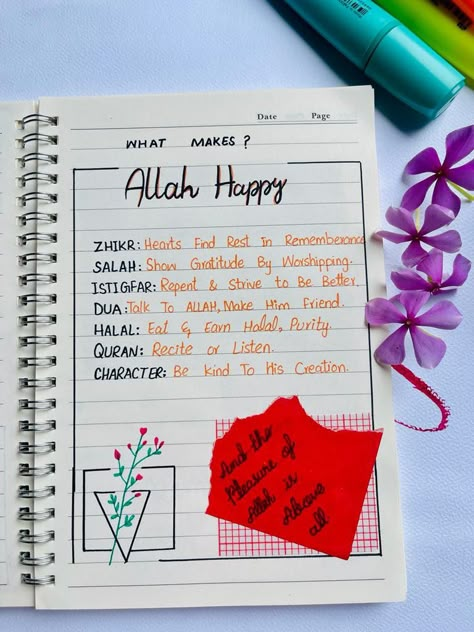 Date Page
WHAT MAKES ?
Allah Happy
ZHIKR: Hearts Find Rest In Rememberance
SALAH: Show Gratitude By Worshipping.
ISTIGFAR: Repent & Strive to Be Better.
DUA: Talk To ALLAH, Make Him Friend.
HALAL: Eat & Earn Halal, Purity.
QURAN: Recite or Listen.
CHARACTER: Be Kind To His Creation.
And the
Pleasure of
Allah is
Above
all